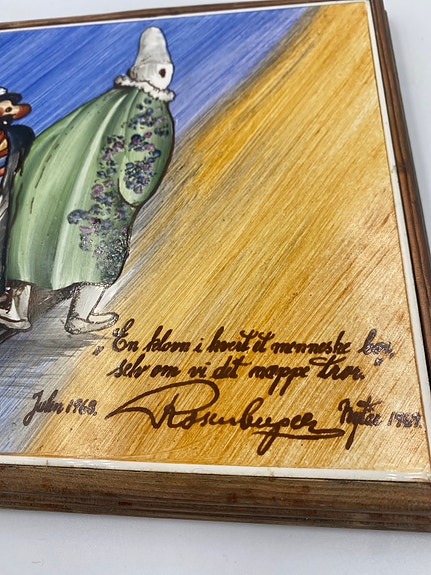 „En klovn i hvert et menneske bor,
selv om vi det næppe tror.
Julen 1968. Nytår 1969.